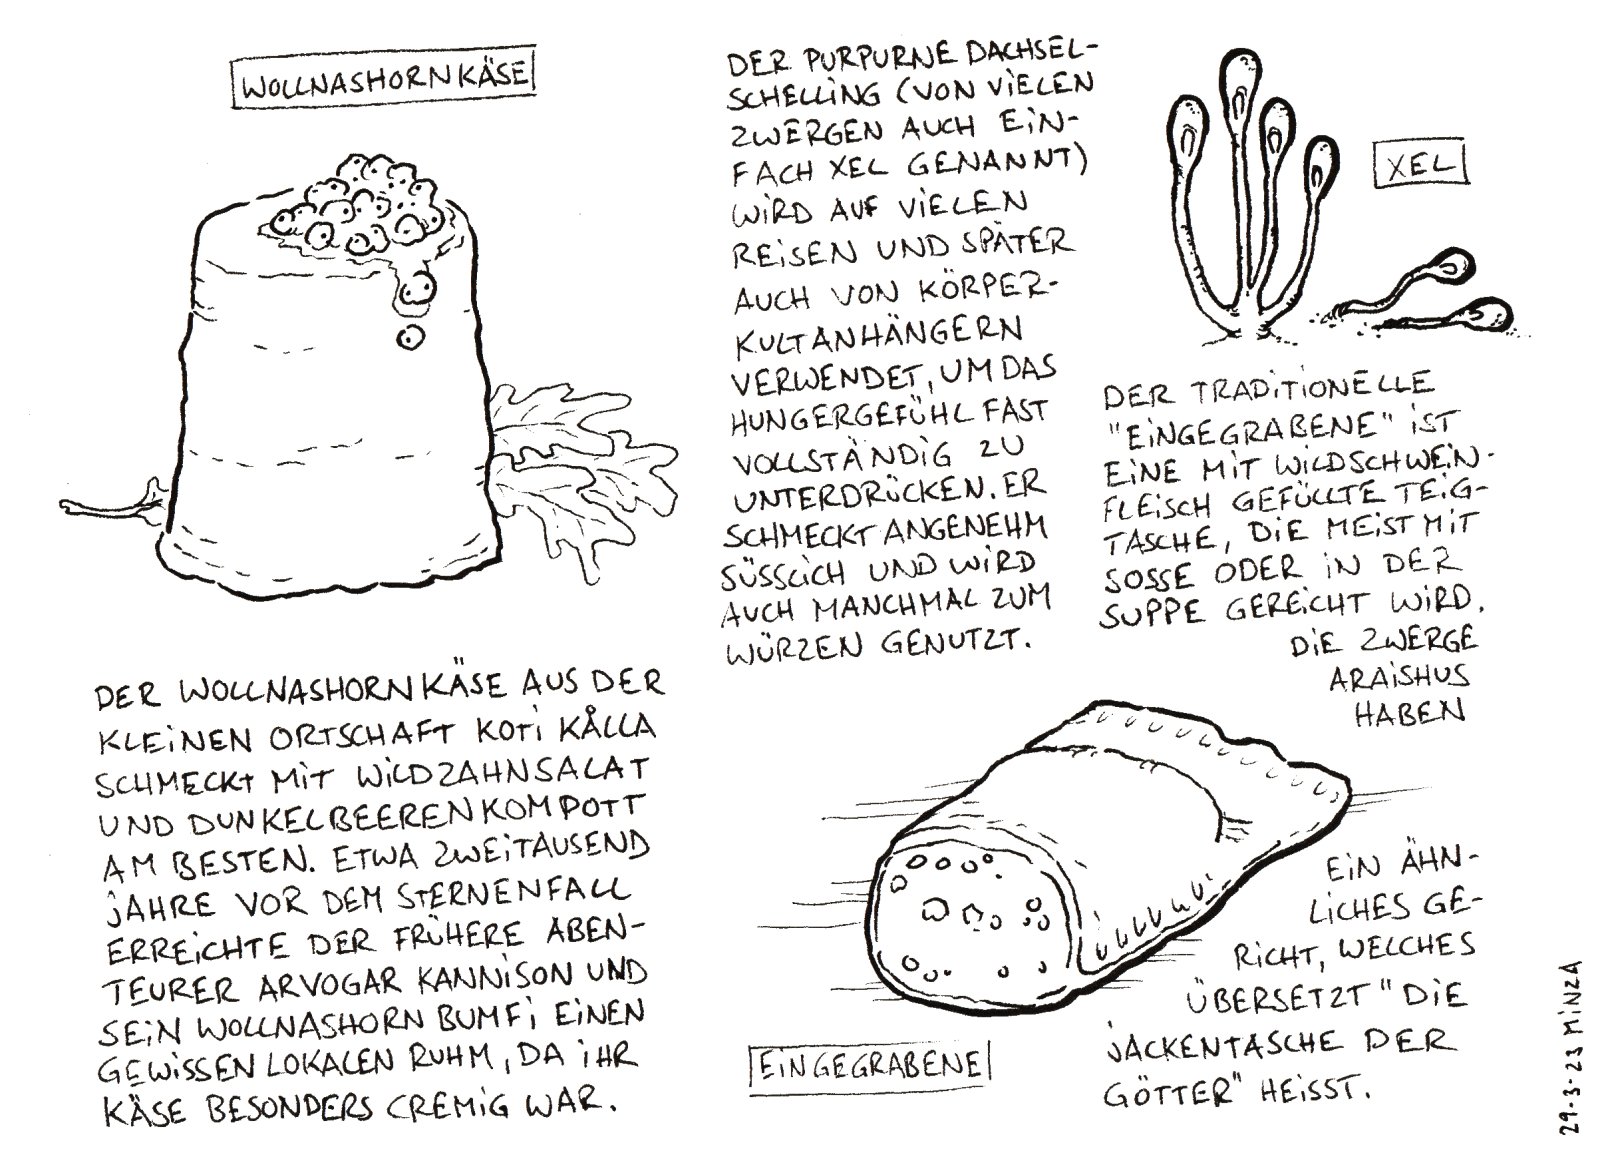 WOLLNASHORNKÄSE
DER WOLLNASHORNKÄSE AUS DER
KLEINEN ORTSCHAFT KOTI KÅLLA
SCHMECKT MIT WILDZAHNSALAT
UND DUNKELBEERENKOMPOTT
AM BESTEN. ETWA ZWEITAUSEND
JAHRE VOR DEM STERNENFALL
ERREICHTE DER FRÜHERE ABEN-
TEURER ARVOGAR KANNISON UND
SEIN WOLLNASHORN BUMFI EINEN
GEWISSEN LOKALEN RUHM, DA IHR
KÄSE BESONDERS CREMIG WAR.
DER PURPURNE DACHSEL-
SCHELLING (VON VIELEN
ZWERGEN AUCH EIN-
FACH XEL GENANNT)
WIRD AUF VIELEN
REISEN UND SPÄTER
AUCH VON KÖRPER-
KULTANHÄNGERN
VERWENDET, UM DAS
HUNGERGEFÜHL FAST
VOLLSTÄNDIG ZU
UNTERDRÜCKEN. ER
SCHMECKT ANGENEHM
SÜSSLICH UND WIRD
AUCH MANCHMAL ZUM
WÜRZEN GENUTZT.
XEL
DER TRADITIONELLE
"EINGEGRABENE" IST
EINE MIT WILDSCHWEIN-
FLEISCH GEFÜLLTE TEIG-
TASCHE, DIE MEIST MIT
SOSSE ODER IN DER
SUPPE GEREICHT WIRD.
DIE ZWERGE
ARAISHUS
HABEN
EIN ÄHN-
LICHES GE-
RICHT, WELCHES
ÜBERSETZT "DIE
JACKENTASCHE DER
GÖTTER" HEISST.
EINGEGRABENE
29.3.23 MINZA